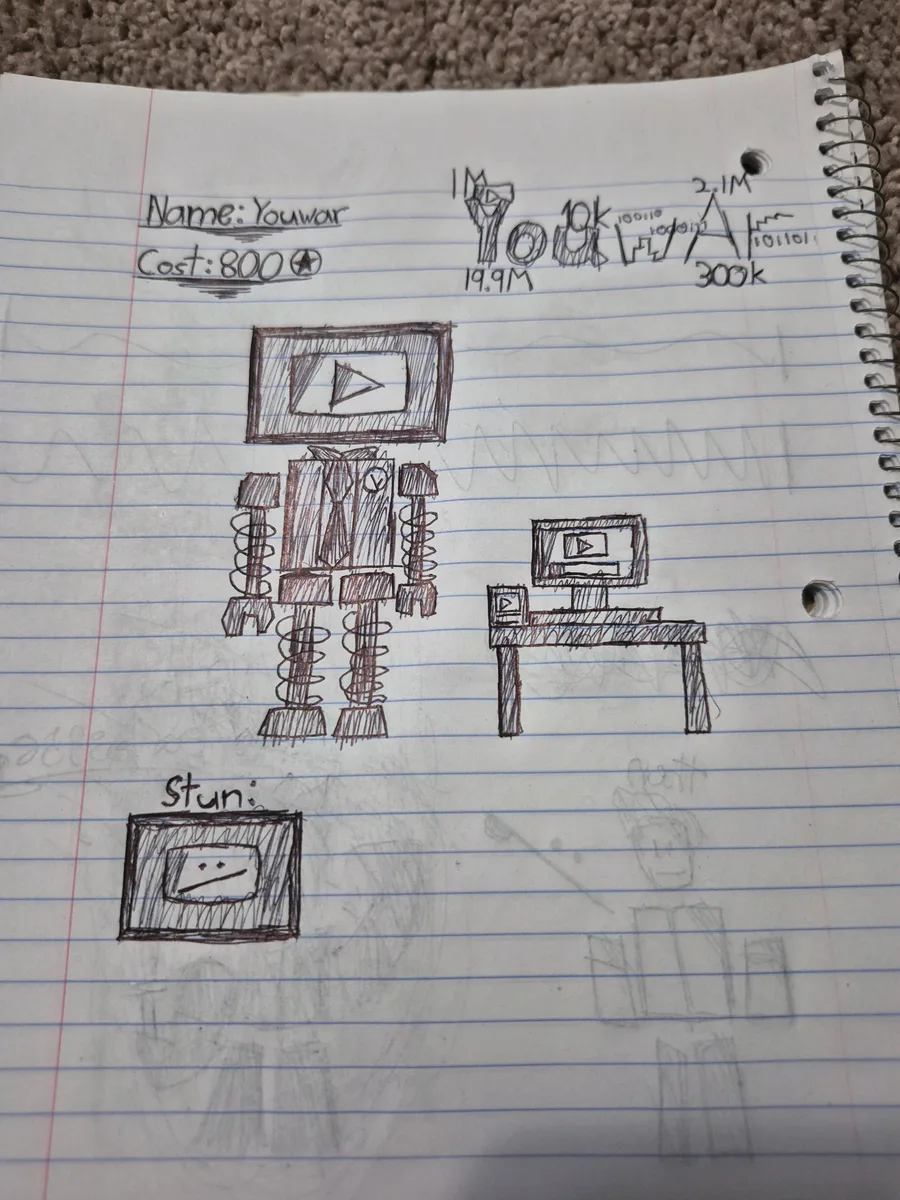 Name: Youwar
Cost: 800
1M
10k
2.1M
YouwAr
100110
100010
101101
19.9M
300k
Y
Stun: